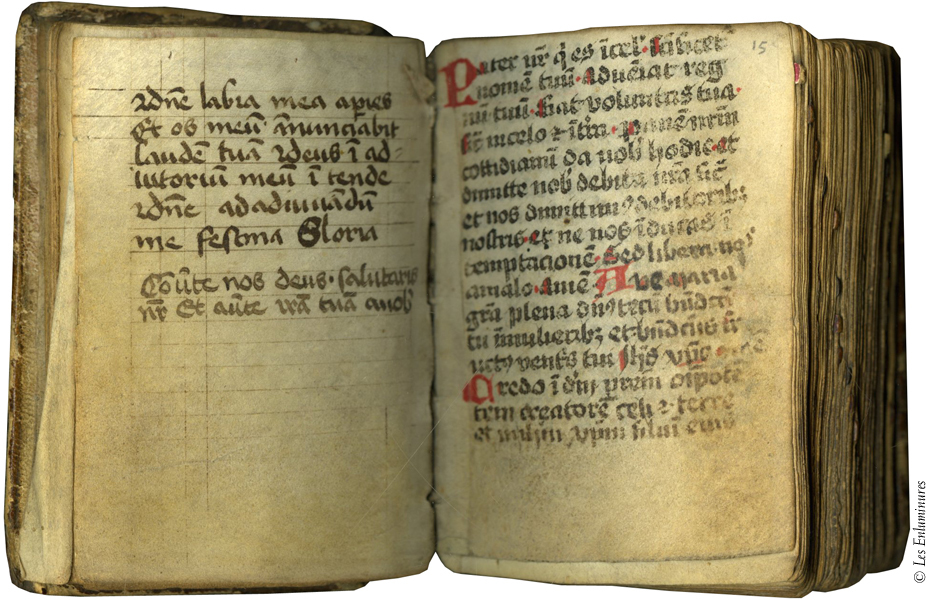 Dn̄e labia mea aꝑies
Et os meū ānunciabit
laudē tuā Deus ī ad-
iutoriū meū ītende
Dn̄e ad adiuuādū
me festina Gloria
Cōūte nos deus · salutaris
nr̄ Et aūte irā tuā a nob̄
15
Pater nr̄ q̄ es ī cel̄ · s̄c̄ificet̄
nomē tuū · adueniat reg
nū tuū · fiat voluntas tua ·
sic̄ in celo ⁊ ī t̄ra · panē nr̄m
cottidianū da nob̄ hodie · et
dimitte nob̄ debita nr̄a sic̄
et nos dimittimꝰ debitoribꝫ
nostris · et ne nos īducas ī
temptacionē · Sed libera nos
a malo · amē · Aue maria
gr̄a plena dn̄s tecū bn̄dc̄a
tu ī mulieribꝫ et bn̄dc̄us fr
uctꝰ ventr̄s tui ih̄s xp̄c
Credo ī dm̄ pr̄em om̄ipotē
tem creatorē celi ⁊ terre
et in ih̄m xp̄m filiū eius
© Les Enluminures